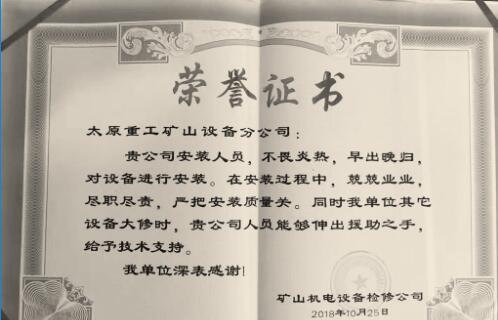 荣誉证书
太原重工矿山设备分公司：
贵公司安装人员，不畏炎热，早出晚归，
对设备进行安装。在安装过程中，兢兢业业，
尽职尽责，严把安装质量关。同时我单位其它
设备大修时，贵公司人员能够伸出援助之手，
给予技术支持。
我单位深表感谢！
矿山机电设备检修公司
2018年10月25日